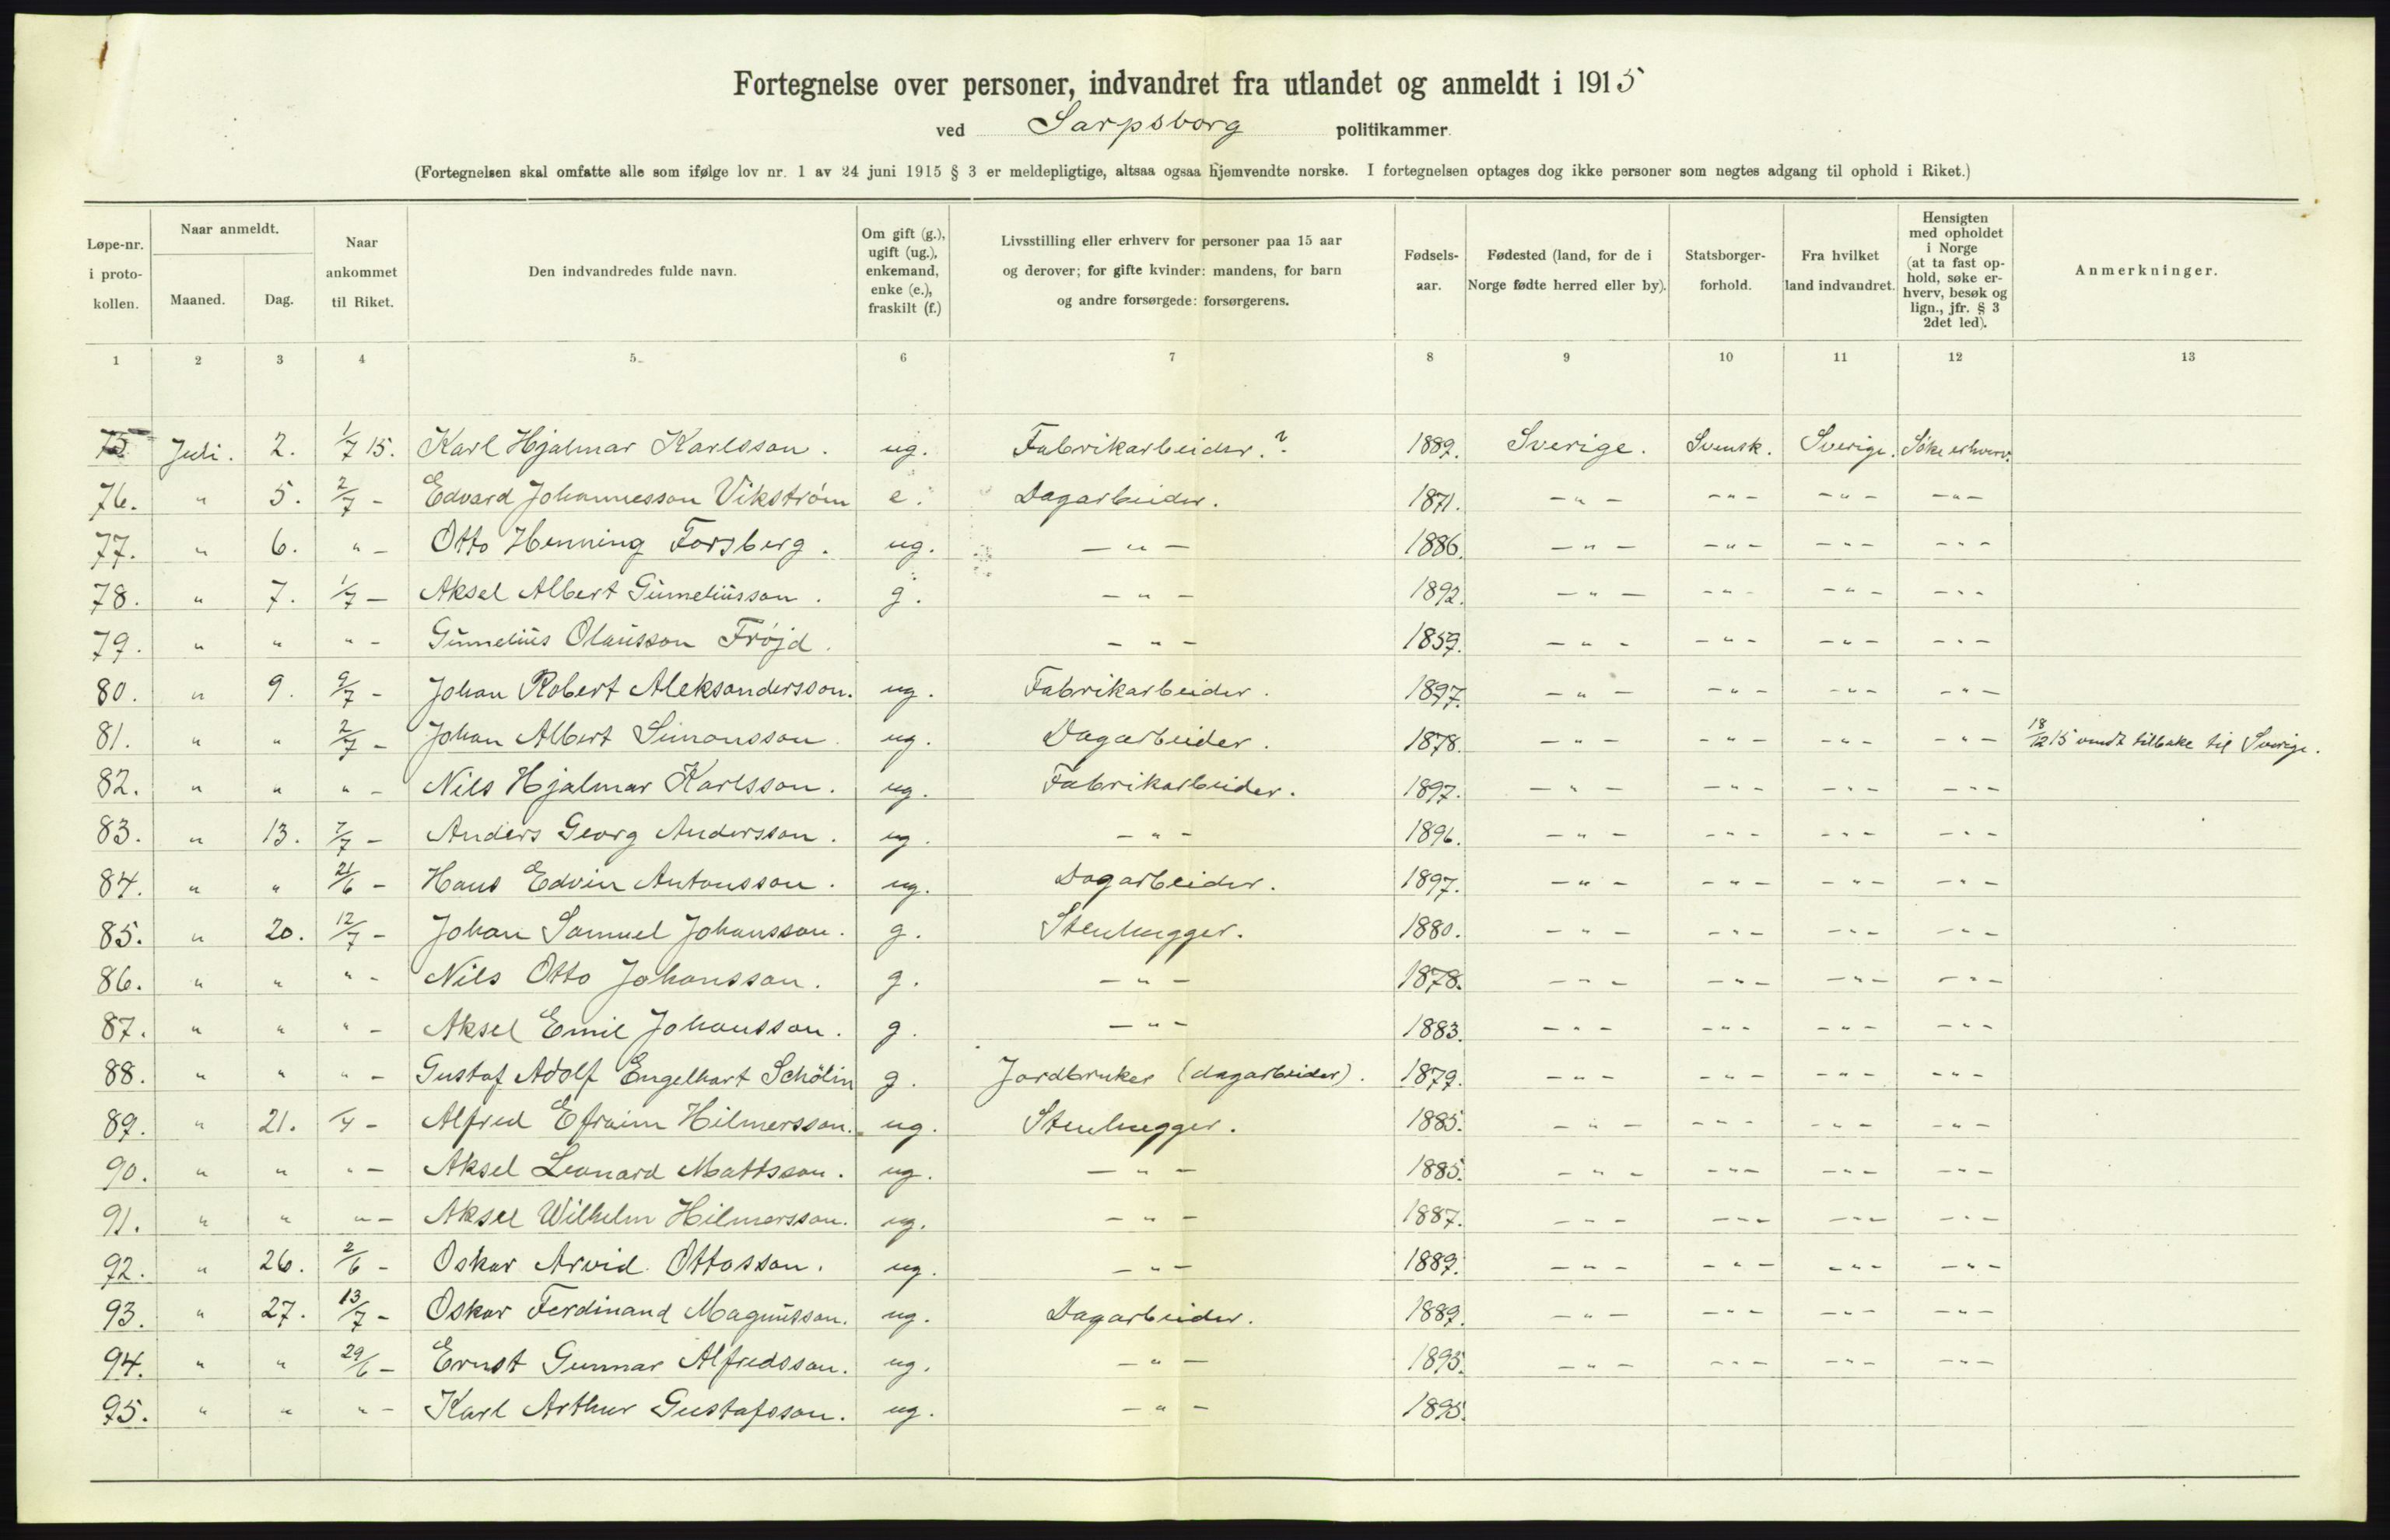 Fortegnelse over personer, indvandret fra utlandet og anmeldt i 1915
ved Sarpsborg politikammer
(Fortegnelsen skal omfatte alle som ifølge lov nr. 1 av 24 juni 1915 § 3 er meldepligtige, altsaa ogsaa hjemvendte norske. I fortegnelsen optages dog ikke personer som negtes adgang til ophold i Riket.)
Løpe-nr. i proto-kollen.
Naar anmeldt.
Maaned.
Dag.
Naar ankommet til Riket.
Den indvandredes fulde navn.
Om gift (g.), ugift (ug.), enkemand, enke (e.), fraskilt (f.)
Livsstilling eller erhverv for personer paa 15 aar og derover; for gifte kvinder: mandens, for barn og andre forsørgede: forsørgerens.
Fødsels-aar.
Fødested (land, for de i Norge fødte herred eller by).
Statsborger-forhold.
Fra hvilket land indvandret.
Hensigten med opholdet i Norge (at ta fast op-hold, søke er-hverv, besøk og lign., jfr. § 3 2det led).
Anmerkninger.
1 2 3 4 5 6 7 8 9 10 11 12 13
75. Juli. 2. 1/7 15. Karl Hjalmar Karlsson. ug. Fabrikarbeider.? 1889. Sverige. Svensk. Sverige. Søke erhverv.
76. " 5. 2/7 - Edvard Johannesson Vikstrøm e. Dagarbeider. 1871. -"- -"- -"- -"-
77. " 6. " - Otto Henning Forsberg. ug. -"- 1886. -"- -"- -"- -"-
78. " 7. 1/7 - Aksel Albert Gunneliusson. g. -"- 1892. -"- -"- -"- -"-
79. " " " - Gunnelius Olausson Frøjd. -"- 1859. -"- -"- -"- -"-
80. " 9. 9/7 - Johan Robert Aleksandersson. ug. Fabrikarbeider. 1897. -"- -"- -"- -"-
81. " " 2/7 - Johan Albert Simonsson. ug. Dagarbeider. 1878. -"- -"- -"- -"- 18/12 15 vendt tilbake til Sverige.
82. " " " - Nils Hjalmar Karlsson. ug. Fabrikarbeider. 1897. -"- -"- -"- -"-
83. " 13. 7/7 - Anders Georg Andersson. ug. -"- 1896. -"- -"- -"- -"-
84. " " 21/6 - Hans Edvin Antonsson. ug. Dagarbeider. 1897. -"- -"- -"- -"-
85. " 20. 12/7 - Johan Samuel Johansson. g. Stenhugger. 1880. -"- -"- -"- -"-
86. " " " - Nils Otto Johansson. g. -"- 1878. -"- -"- -"- -"-
87. " " " - Aksel Emil Johansson. g. -"- 1883. -"- -"- -"- -"-
88. " " " - Gustaf Adolf Engelhart Schölin g. Jordbruker (dagarbeider). 1879. -"- -"- -"- -"-
89. " 21. - Alfred Efraim Hilmersson. ug. Stenhugger. 1885. -"- -"- -"- -"-
90. " " " - Aksel Leonard Mattsson. ug. -"- 1885. -"- -"- -"- -"-
91. " " " - Aksel Wilhelm Hilmersson. ug. -"- 1887. -"- -"- -"- -"-
92. " 26. 2/6 - Oskar Arvid Ottosson. ug. -"- 1889. -"- -"- -"- -"-
93. " 27. 13/7 - Oskar Ferdinand Magnusson. ug. Dagarbeider. 1889. -"- -"- -"- -"-
94. " " 29/6 - Ernst Gunnar Alfredsson. ug. -"- 1895. -"- -"- -"- -"-
95. " " " - Karl Arthur Gustafsson. ug. -"- 1895.